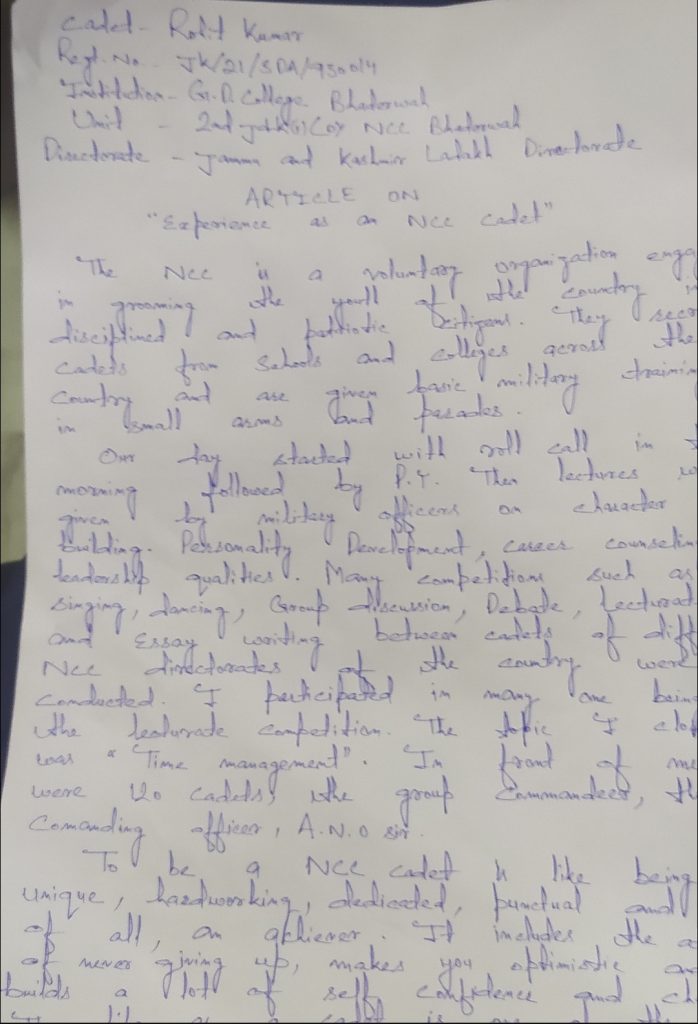 Cadet - Rohit Kumar
Regt. No - JK/21/SDA/930014
Institution - G.D. College Bhaderwah
Unit - 2nd J&K(I) Coy NCC Bhaderwah
Directorate - Jammu and Kashmir Ladakh Directorate
ARTICLE ON
"Experience as an NCC Cadet"
The NCC is a voluntary organization enga
in grooming the youth of the country in
disciplined and patriotic citizens. They recr
cadets from Schools and colleges across the
country and are given basic military trainin
in small arms and parades.
Our day started with roll call in t
morning followed by P.T. Then lectures we
given by military officers on character
building. Personality Development, career counselin
leadership qualities. Many competitions such as
Singing, dancing, Group discussion, Debate, Lecturat
and Essay writing between cadets of diff
NCC directorates of the country were
conducted. I participated in many one being
the lecturate competition. The topic I
was "Time management". In front of me
were 120 cadets, the group Commandeer, th
Comanding officer, A.N.O sir.
To be a NCC cadet is like being
unique, hardworking, dedicated, punctual and
of all, an achiever. It includes the a
of never giving up, makes you optimistic an
builds a lot of self confidence and ch